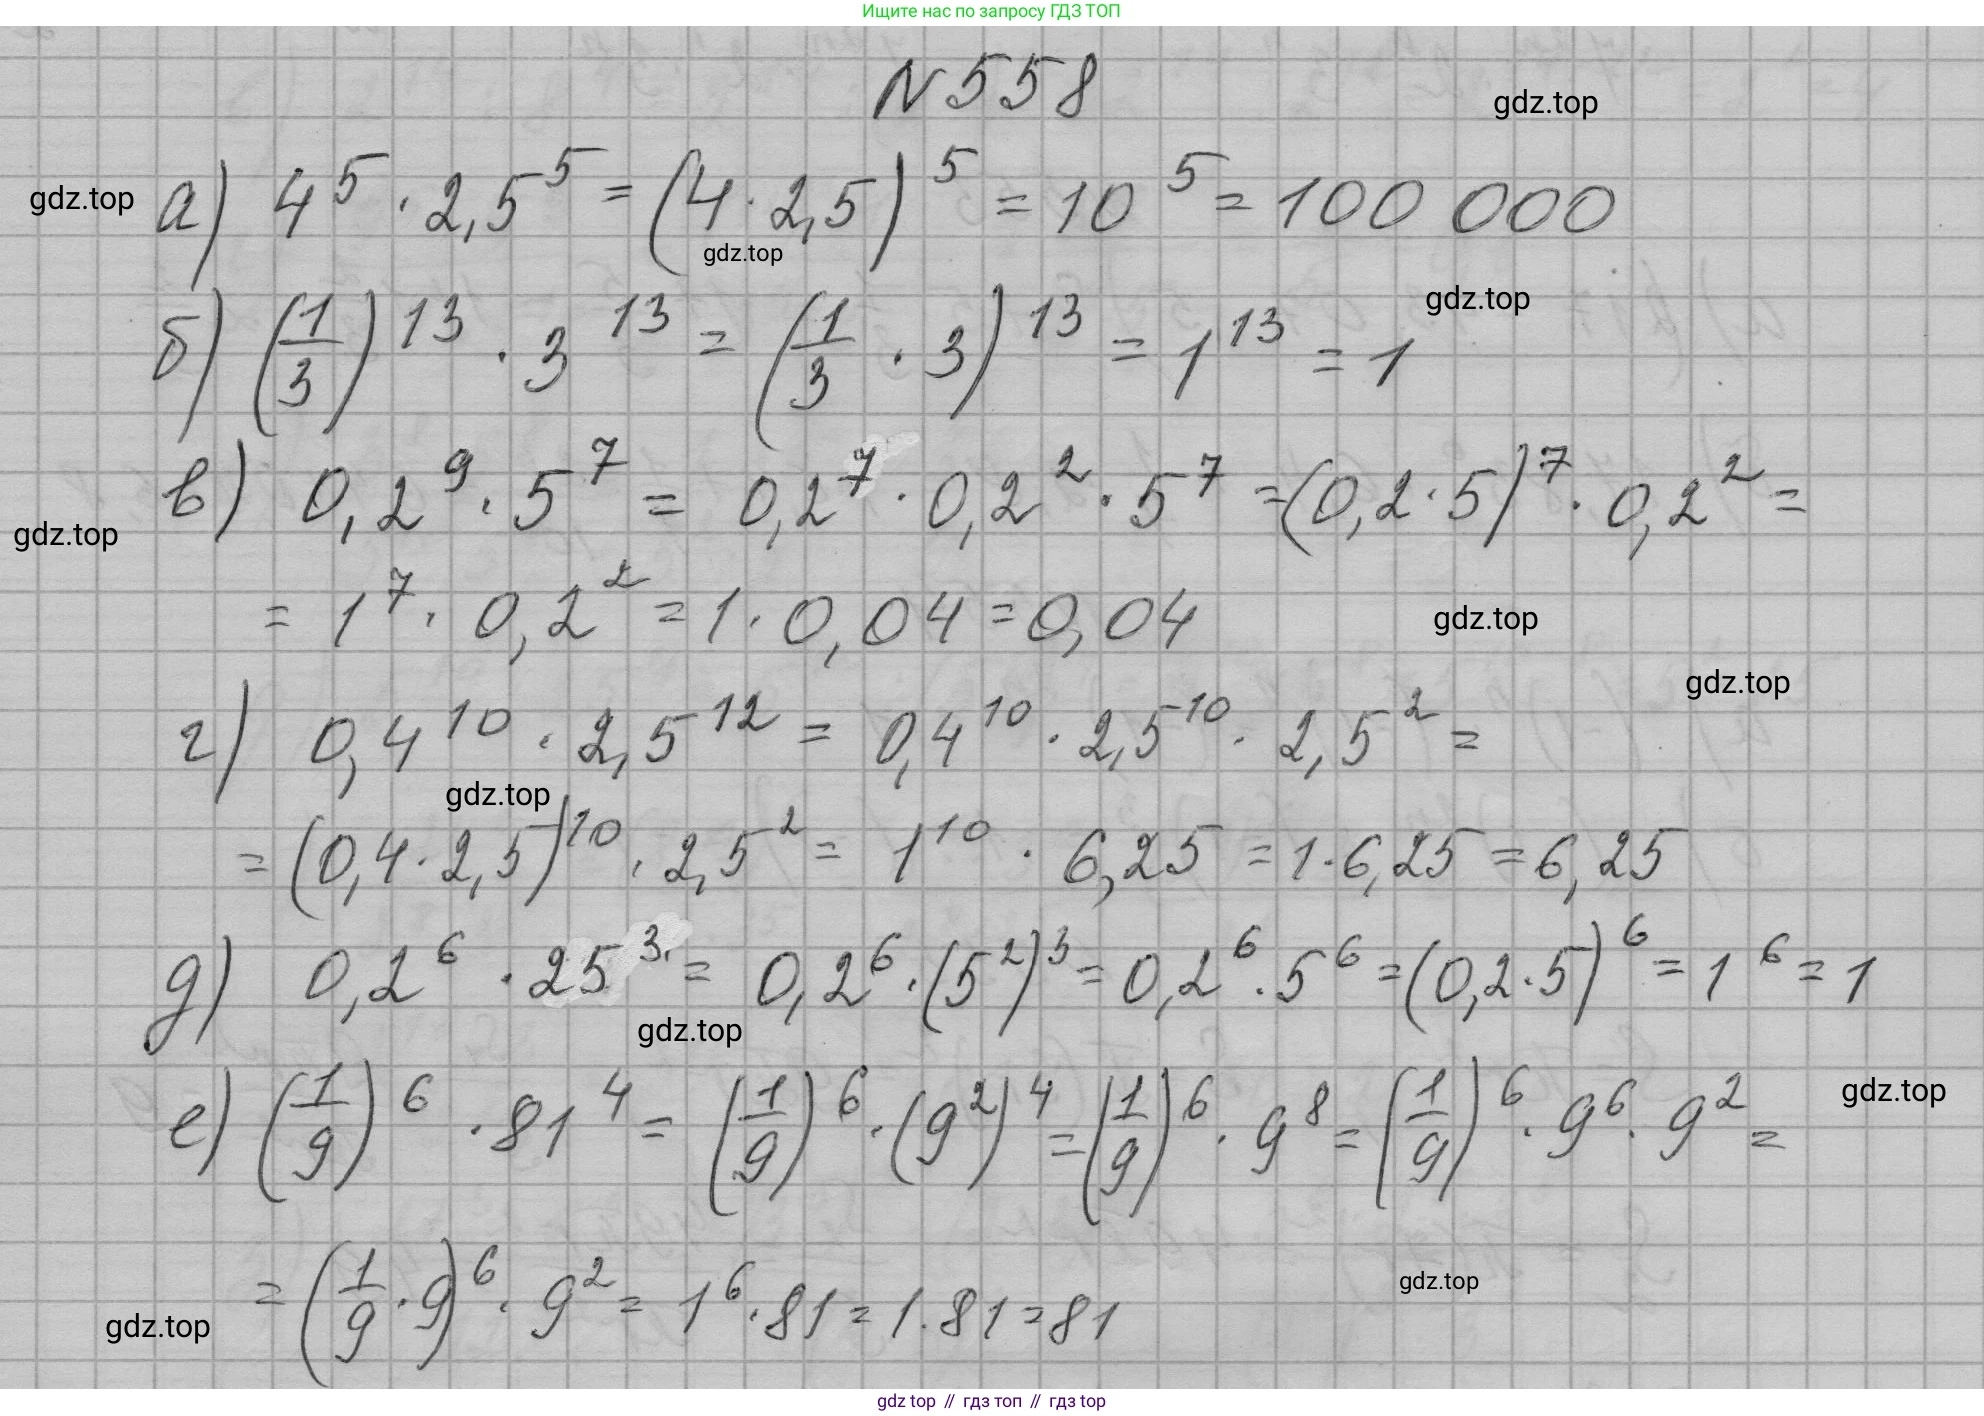 Ищите нас по запросу ГДЗ ТОП
N558
gdz.top
gdz.top
а) 4^5 · 2,5^5 = (4 · 2,5)^5 = 10^5 = 100 000
gdz.top
gdz.top
б) (1/3)^13 · 3^13 = (1/3 · 3)^13 = 1^13 = 1
в) 0,2^9 · 5^7 = 0,2^7 · 0,2^2 · 5^7 = (0,2 · 5)^7 · 0,2^2 =
gdz.top
= 1^7 · 0,2^2 = 1 · 0,04 = 0,04
gdz.top
gdz.top
г) 0,4^10 · 2,5^12 = 0,4^10 · 2,5^10 · 2,5^2 =
gdz.top
= (0,4 · 2,5)^10 · 2,5^2 = 1^10 · 6,25 = 1 · 6,25 = 6,25
д) 0,2^6 · 25^3 = 0,2^6 · (5^2)^3 = 0,2^6 · 5^6 = (0,2 · 5)^6 = 1^6 = 1
gdz.top
gdz.top
е) (1/9)^6 · 81^4 = (1/9)^6 · (9^2)^4 = (1/9)^6 · 9^8 = (1/9)^6 · 9^6 · 9^2 =
gdz.top
= (1/9 · 9)^6 · 9^2 = 1^6 · 81 = 1 · 81 = 81
gdz.top
gdz top // гдз топ // гдз top